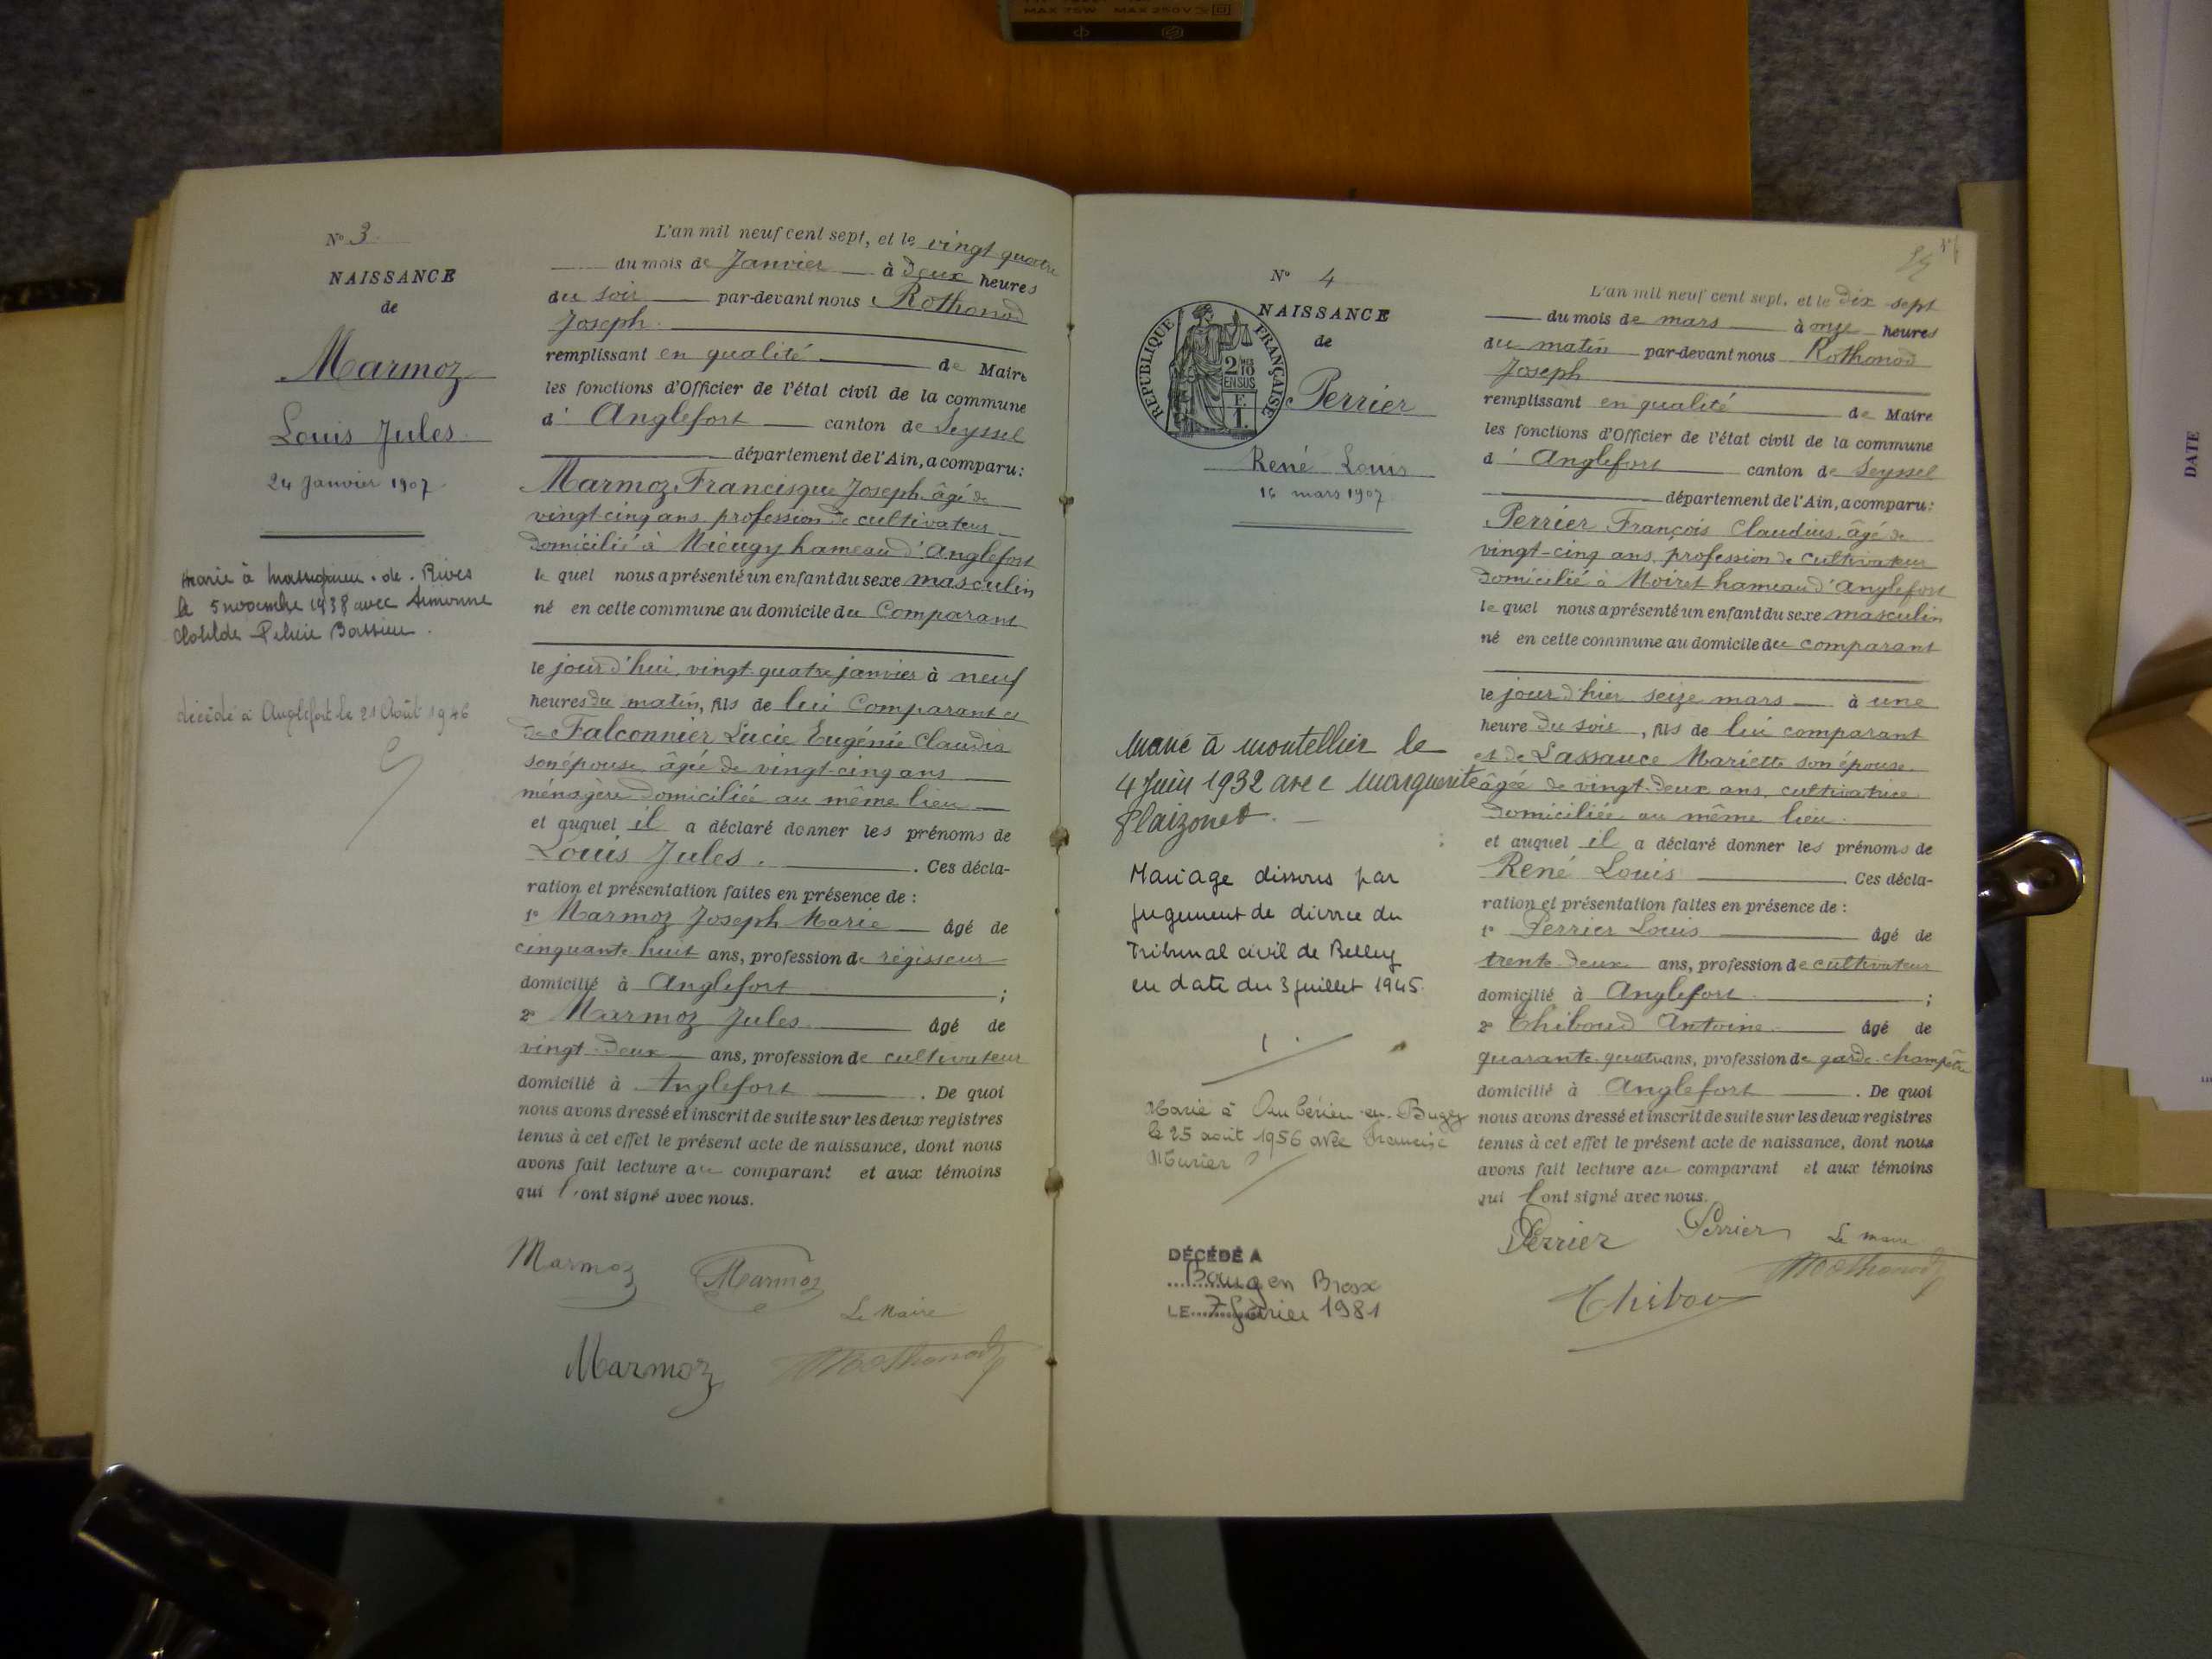 MAX 75W MAX 250V
Nº 3
NAISSANCE
de
Marmoz
Louis Jules
24 Janvier 1907
marié à Massignieu-de-Rives
le 5 novembre 1938 avec Simonne
Clotilde Bassieu.
décédé à Anglefort le 21 Août 1946
L'an mil neuf cent sept, et le vingt quatre
du mois de Janvier à deux heures
du soir par-devant nous Rothonod
Joseph
remplissant en qualité de Maire
les fonctions d'Officier de l'état civil de la commune
d' Anglefort canton de Seyssel
département de l'Ain, a comparu:
Marmoz Francisque Joseph, âgé de
vingt-cinq ans, profession de cultivateur
domicilié à Mieugy hameau d'Anglefort
le quel nous a présenté un enfant du sexe masculin
né en cette commune au domicile du Comparant
le jour d'hui, vingt-quatre janvier à neuf
heures du matin, fils de lui Comparant et
de Falconnier Lucie Eugénie Claudia
son épouse, âgée de vingt-cinq ans
ménagère domiciliée au même lieu
et auquel il a déclaré donner les prénoms de
Louis Jules. Ces décla-
ration et présentation faites en présence de :
1º Marmoz Joseph Marie âgé de
cinquante huit ans, profession de régisseur
domicilié à Anglefort ;
2º Marmoz Jules âgé de
vingt-deux ans, profession de cultivateur
domicilié à Anglefort . De quoi
nous avons dressé et inscrit de suite sur les deux registres
tenus à cet effet le présent acte de naissance, dont nous
avons fait lecture au comparant et aux témoins
qui l'ont signé avec nous.
Marmoz Marmoz
Le Maire
Marmoz Rothonod
Nº 4
NAISSANCE
de
RÉPUBLIQUE FRANÇAISE
2/10
EN SUS
F.
1.
Perrier
René Louis
16 mars 1907
Marié à Montellier le
4 Juin 1932 avec Marguerite
Plaizonet.
Mariage dissous par
jugement de divorce du
Tribunal civil de Belley
en date du 3 juillet 1945.
Marié à Ambérieu-en-Bugey
le 25 août 1956 avec Francine
Murier
DÉCÉDÉ A
Bourg en Bresse
LE 7 février 1981
L'an mil neuf cent sept, et le dix-sept
du mois de mars à onze heures
du matin par-devant nous Rothonod
Joseph
remplissant en qualité de Maire
les fonctions d'Officier de l'état civil de la commune
d' Anglefort canton de Seyssel
département de l'Ain, a comparu:
Perrier François Claudius, âgé de
vingt-cinq ans, profession de cultivateur
domicilié à Moiret hameau d'Anglefort
le quel nous a présenté un enfant du sexe masculin
né en cette commune au domicile du comparant
le jour d'hier seize mars à une
heure du soir, fils de lui comparant
et de Lassauce Mariette son épouse
âgée de vingt-deux ans, cultivatrice
domiciliée au même lieu.
et auquel il a déclaré donner les prénoms de
René Louis . Ces décla-
ration et présentation faites en présence de :
1º Perrier Louis âgé de
trente-deux ans, profession de cultivateur
domicilié à Anglefort ;
2º Thiboud Antoine âgé de
quarante-quatre ans, profession de garde-champêtre
domicilié à Anglefort . De quoi
nous avons dressé et inscrit de suite sur les deux registres
tenus à cet effet le présent acte de naissance, dont nous
avons fait lecture au comparant et aux témoins
qui l'ont signé avec nous.
Perrier Perrier Le maire
Rothonod
Thibou
DATE